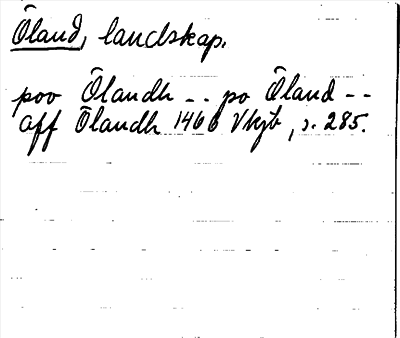 Öland, landskap.
poo Ölandh -- po Öland --
aff Ölandh 1466 Vkjb, s. 285.